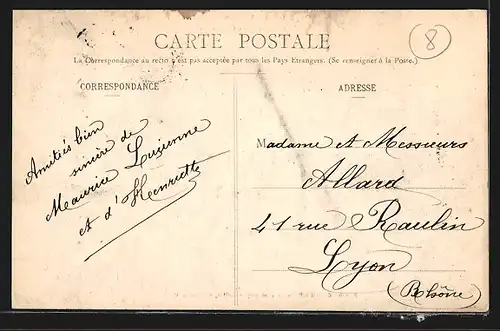 CARTE POSTALE
8
La Correspondance au recto n'est pas acceptée par tous les Pays Etrangers. (Se renseigner à la Poste.)
CORRESPONDANCE
ADRESSE
Amitiés bien
sincère de
Maurice Luzienne
et d'Henriette
Madame et Messieurs
Allard
41 rue Raulin
Lyon
(Rhône)